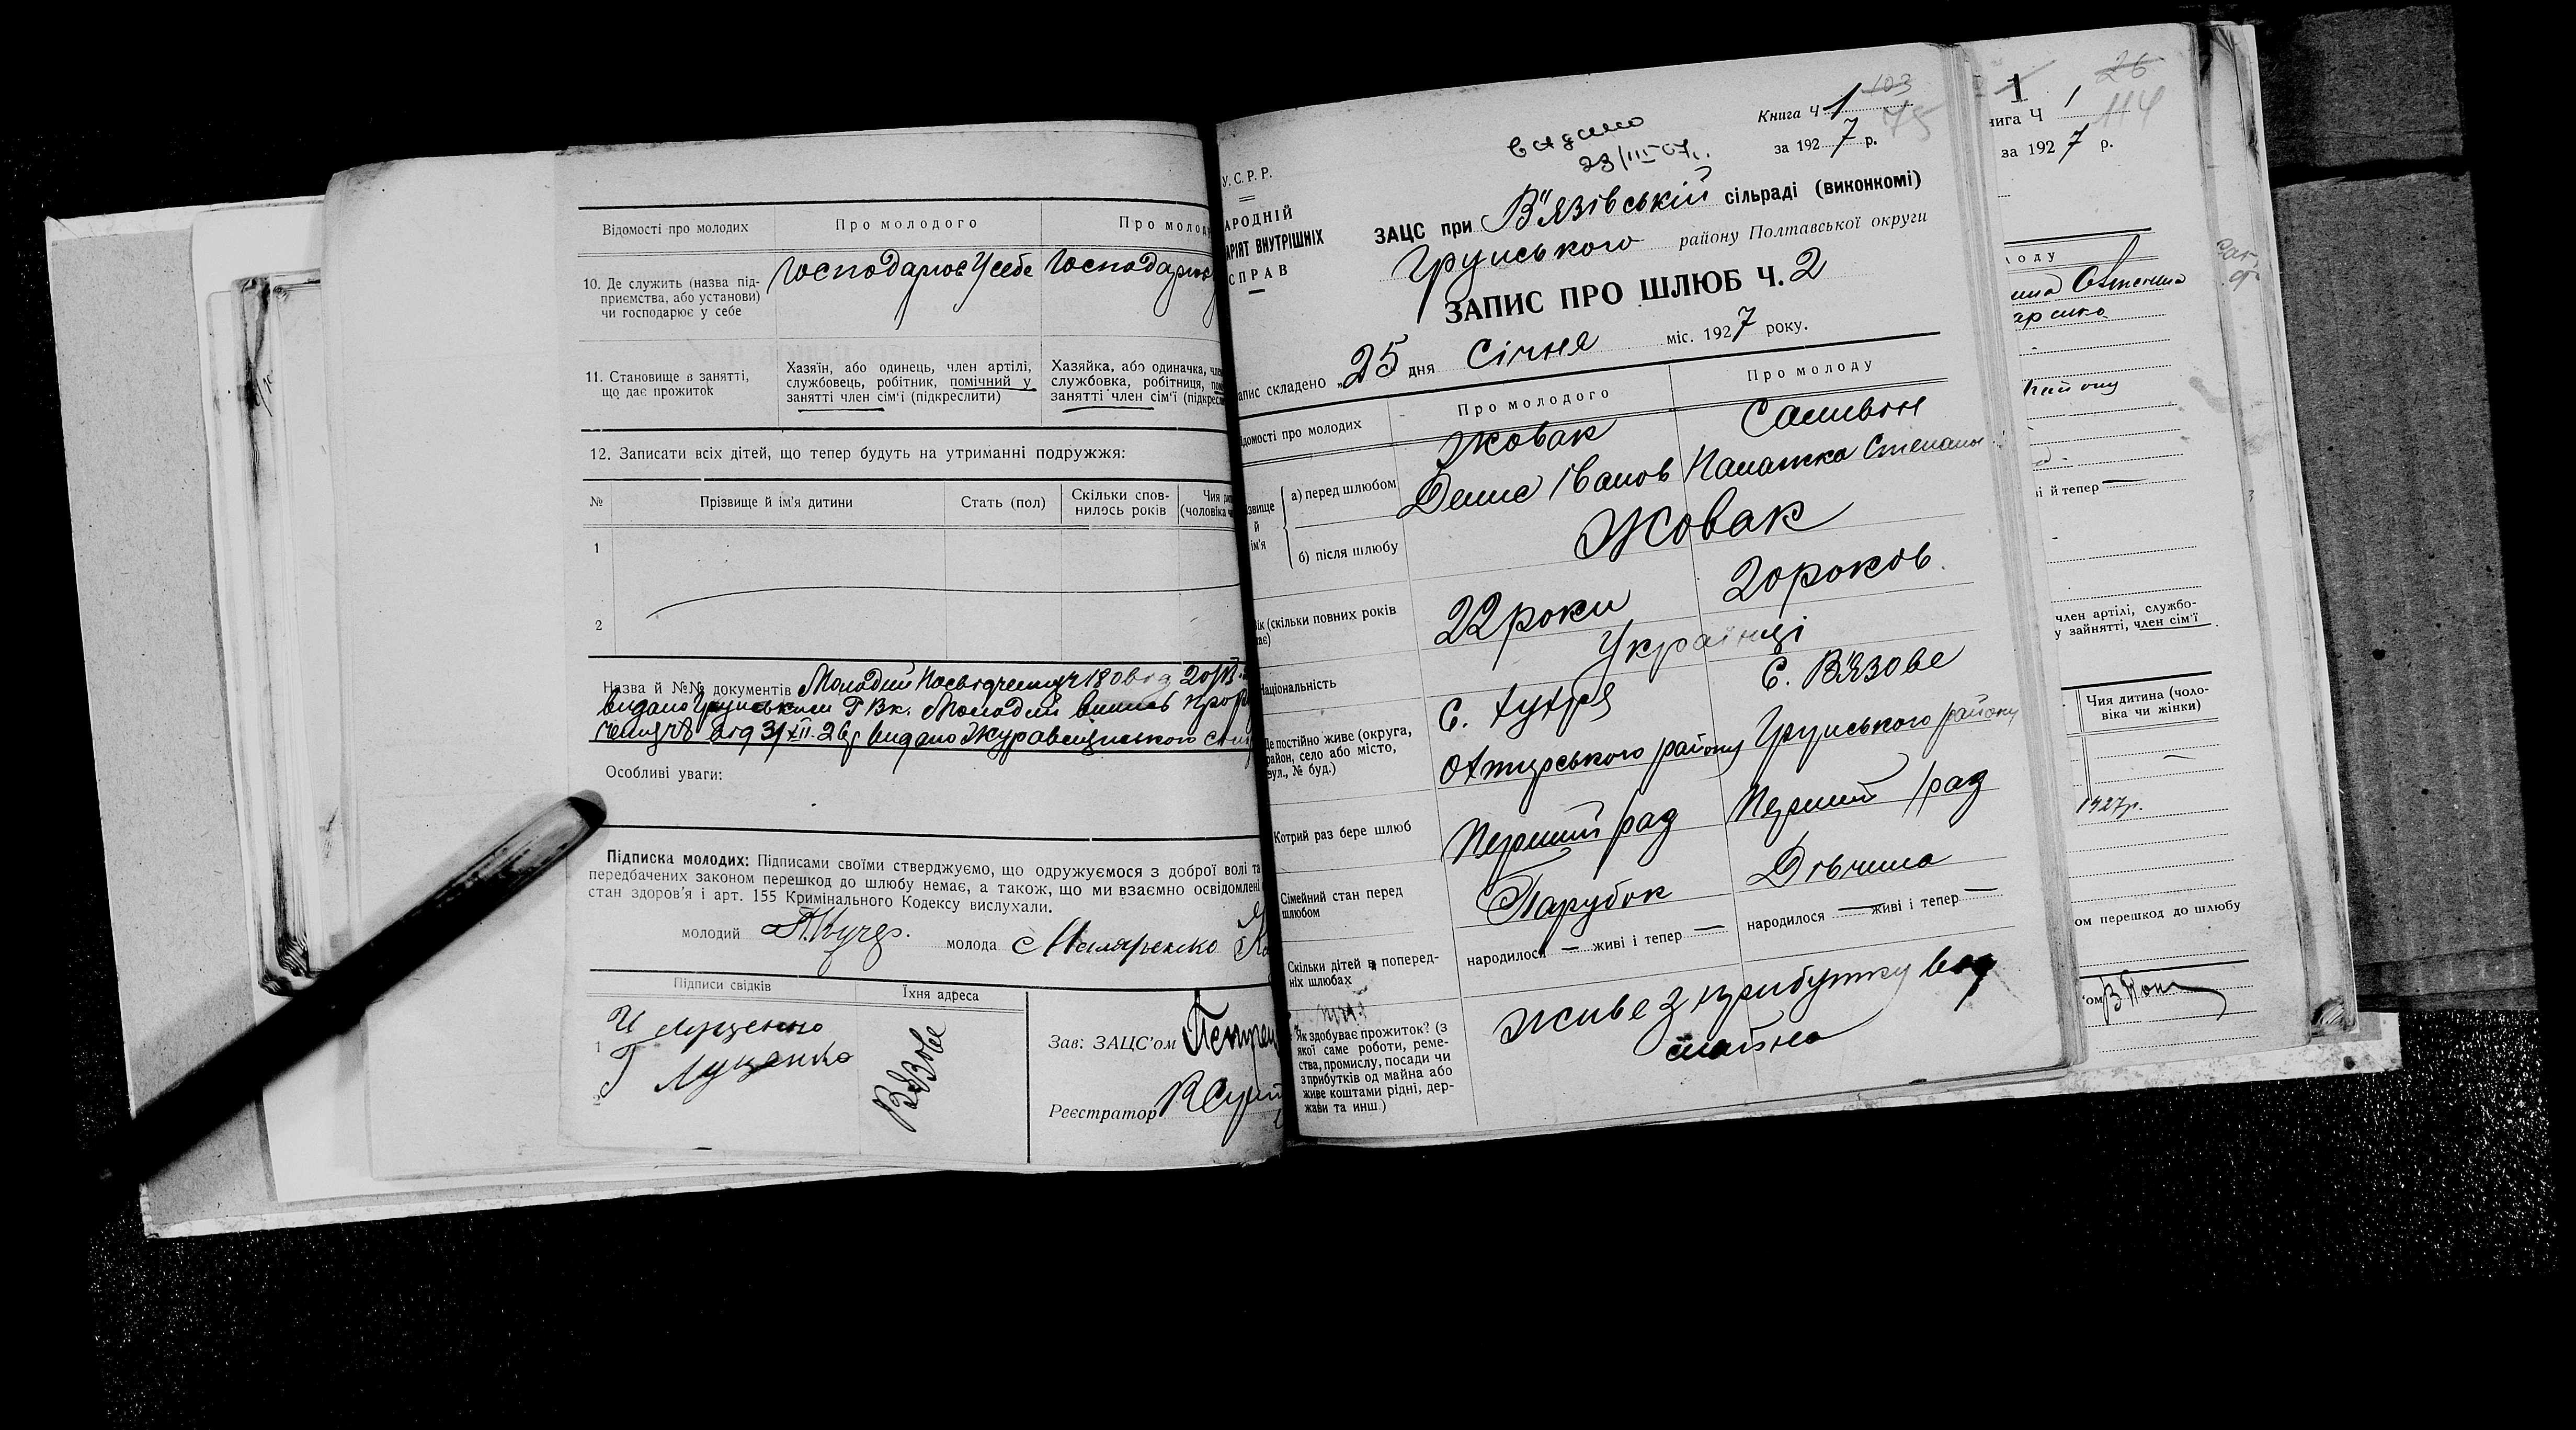 Відомості про молодих
Про молодого
Про молоду
10. Де служить (назва під-
приємства, або установи)
чи господарює у себе
Господарює У себе
Господарює
11. Становище в занятті,
що дає прожиток
Хазяїн, або одинець, член артілі,
службовець, робітник, помічний у
занятті член сім'ї (підкреслити)
Хазяйка, або одиначка, член
службовка, робітниця, пом
занятті член сім'ї (підкресл
12. Записати всіх дітей, що тепер будуть на утриманні подружжя:
№
Прізвище й ім'я дитини
Стать (пол)
Скільки спов-
нилось років
Чия дит
(чоловіка ч
1
2
Назва й №№ документів Молодий Посвідчення 180 від 20/
видано Грунським Р Вк. Молодий випись про р
ч 8 від 31/XII-26 р видано
Особливі уваги:
Підписка молодих: Підписами своїми стверджуємо, що одружуємося з доброї волі та
передбачених законом перешкод до шлюбу немає, а також, що ми взаємно освідомлені
стан здоров'я і арт. 155 Кримінального Кодексу вислухали.
молодий
молода
Маляренко
Підписи свідків
Їхня адреса
1 И Луценко
2 Г Луценко
В'язове
Зав: ЗАЦС'ом Петрен
Реєстратор
У.С.Р.Р.
АРОДНІЙ
АРІЯТ ВНУТРІШНІХ
СПРАВ
видано
23/III-07г.
Книга Ч 1
103
75
за 1927 р.
ЗАЦС при В'язівській сільраді (виконкомі)
Грунського району Полтавської округи
ЗАПИС ПРО ШЛЮБ Ч. 2
апис складено „25 дня Січня міс. 1927 року.
ідомості про молодих
Про молодого
Про молоду
звище
й
ім'я
а) перед шлюбом
Жовак
Денис Іванов
Саливон
Палажка Степанов
б) після шлюбу
Жовак
ік (скільки повних років
ає)
22 роки
20 років
Національність
Українці
Де постійно живе (округа,
район, село або місто,
вул., № буд.)
С. Хухря
Охтирського району
С. В'язове
Грунського району
Котрий раз бере шлюб
Перший раз
Перший раз
Сімейний стан перед
шлюбом
Парубок
Дівчина
Скільки дітей в поперед-
ніх шлюбах
народилося — живі і тепер —
народилося — живі і тепер —
Як здобуває прожиток? (з
якої саме роботи, реме-
ства, промислу, посади чи
з прибутків од майна або
живе коштами рідні, дер-
жави та инш.)
живе з прибутку від
майна
1
26
нига Ч 1
114
за 1927 р.
лоду
району
і й тепер —
член артілі, службо-
у зайнятті, член сім'ї
Чия дитина (чоло-
віка чи жінки)
1927р.
ом перешкод до шлюбу
'ом